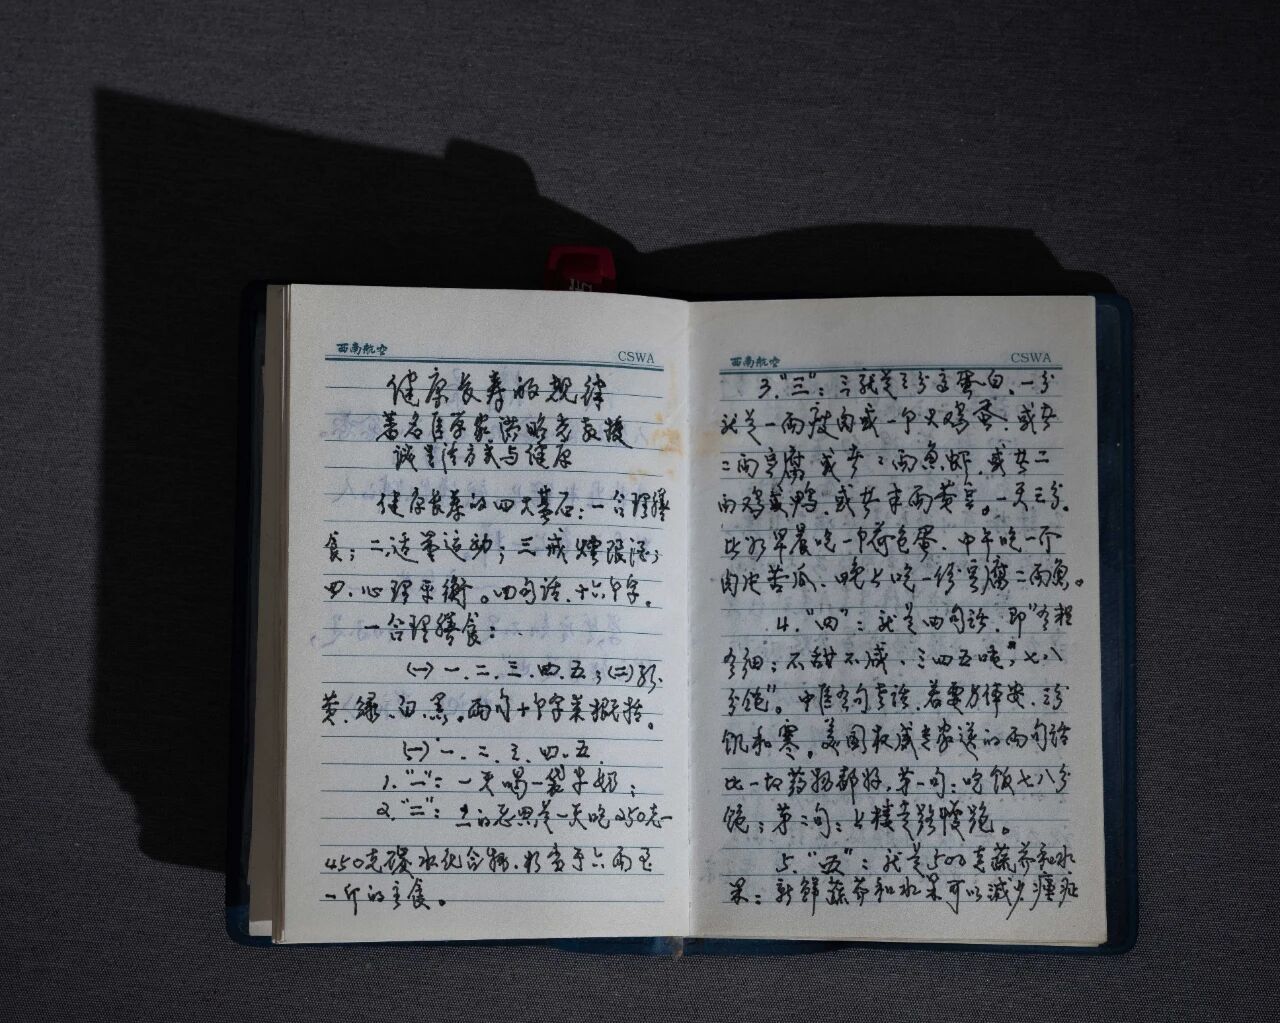 西南航空 CSWA
健康长寿的规律
著名医学家洪昭光教授
谈生活方式与健康
健康长寿的四大基石：一合理膳
食；二适量运动；三戒烟限酒；
四、心理平衡。四句话、十六个字。
一合理膳食：
(一)一、二、三、四、五；(二)红、
黄、绿、白、黑。两句十个字来概括。
(一)一、二、三、四、五
1."一"：一天喝一袋牛奶；
2."二"：二的意思是一天吃250克—
450克碳水化合物，相当于六两至
一斤的主食。
西南航空 CSWA
3."三"：三就是三分高蛋白。一分
就是一两瘦肉或一个大鸡蛋，或者
二两豆腐，或者二两鱼虾，或者二
两鸡或鸭，或者半两黄豆。一天三分。
比如早晨吃一个荷包蛋，中午吃一个
肉片苦瓜，晚上吃一份豆腐二两鱼。
4."四"：就是四句话，即"有粗
有细；不甜不咸，三四五顿"，七八
分饱"。中医有句老话，若要身体安，三分
饥和寒。美国权威专家送的两句话
比一切药物都好，第一句：吃饭七八分
饱；第二句：上楼走路慢跑。
5."五"：就是500克蔬菜和水
果：新鲜蔬菜和水果可以减少癌症